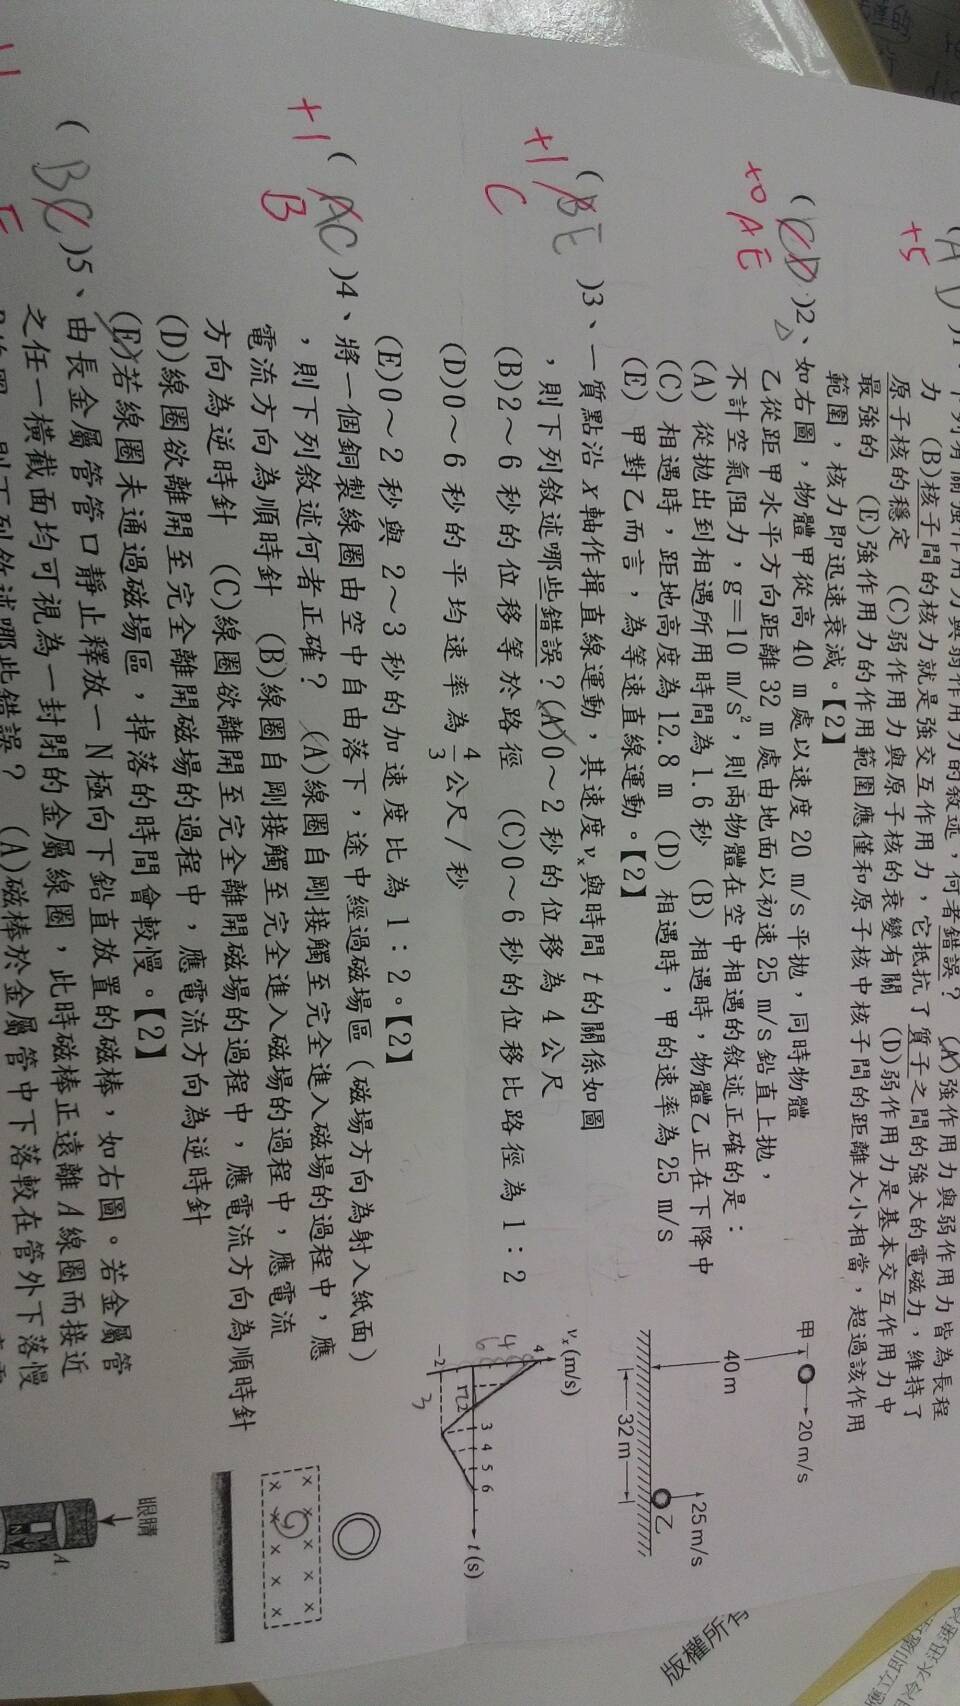 (AD)1、下列有關強作用力與弱作用力的敘述，何者錯誤？ (A)強作用力與弱作用力皆為長程
力 (B)核子間的核力就是強交互作用力，它抵抗了質子之間的強大的電磁力，維持了
原子核的穩定 (C)弱作用力與原子核的衰變有關 (D)弱作用力是基本交互作用力中
最強的 (E)強作用力的作用範圍應僅和原子核中核子間的距離大小相當，超過該作用
範圍，核力即迅速衰減。【2】
+5
(CD)2、如右圖，物體甲從高 40 m 處以速度 20 m/s 平拋，同時物體
乙從距甲水平方向距離 32 m 處由地面以初速 25 m/s 鉛直上拋，
不計空氣阻力，g＝10 m/s²，則兩物體在空中相遇的敘述正確的是：
(A) 從拋出到相遇所用時間為 1.6 秒 (B) 相遇時，物體乙正在下降中
(C) 相遇時，距地高度為 12.8 m (D) 相遇時，甲的速率為 25 m/s
(E) 甲對乙而言，為等速直線運動。【2】
+0 AE
甲
20 m/s
40 m
32 m
25 m/s
乙
(BE)3、一質點沿 x 軸作揖直線運動，其速度 vx 與時間 t 的關係如圖
，則下列敘述哪些錯誤？(A)0～2 秒的位移為 4 公尺
(B)2～6 秒的位移等於路徑 (C)0～6 秒的位移比路徑為 1：2
(D)0～6 秒的平均速率為 4/3 公尺/秒
(E)0～2 秒與 2～3 秒的加速度比為 1：2。【2】
+1 C
vx(m/s)
4
-2
3 4 5 6
t(s)
3
(AC)4、將一個銅製線圈由空中自由落下，途中經過磁場區（磁場方向為射入紙面）
，則下列敘述何者正確？ (A)線圈自剛接觸至完全進入磁場的過程中，應
電流方向為順時針 (B)線圈自剛接觸至完全進入磁場的過程中，應電流
方向為逆時針 (C)線圈欲離開至完全離開磁場的過程中，應電流方向為順時針
(D)線圈欲離開至完全離開磁場的過程中，應電流方向為逆時針
(E)若線圈未通過磁場區，掉落的時間會較慢。【2】
+1 B
(BC)5、由長金屬管管口靜止釋放一 N 極向下鉛直放置的磁棒，如右圖。若金屬管
之任一橫截面均可視為一封閉的金屬線圈，此時磁棒正遠離 A 線圈而接近
B 線圈，則下列敘述哪些錯誤？ (A)磁棒於金屬管中下落較在管外下落慢
E
眼睛
A
N
B
版權所有
應立即處理
冷水迅速冷